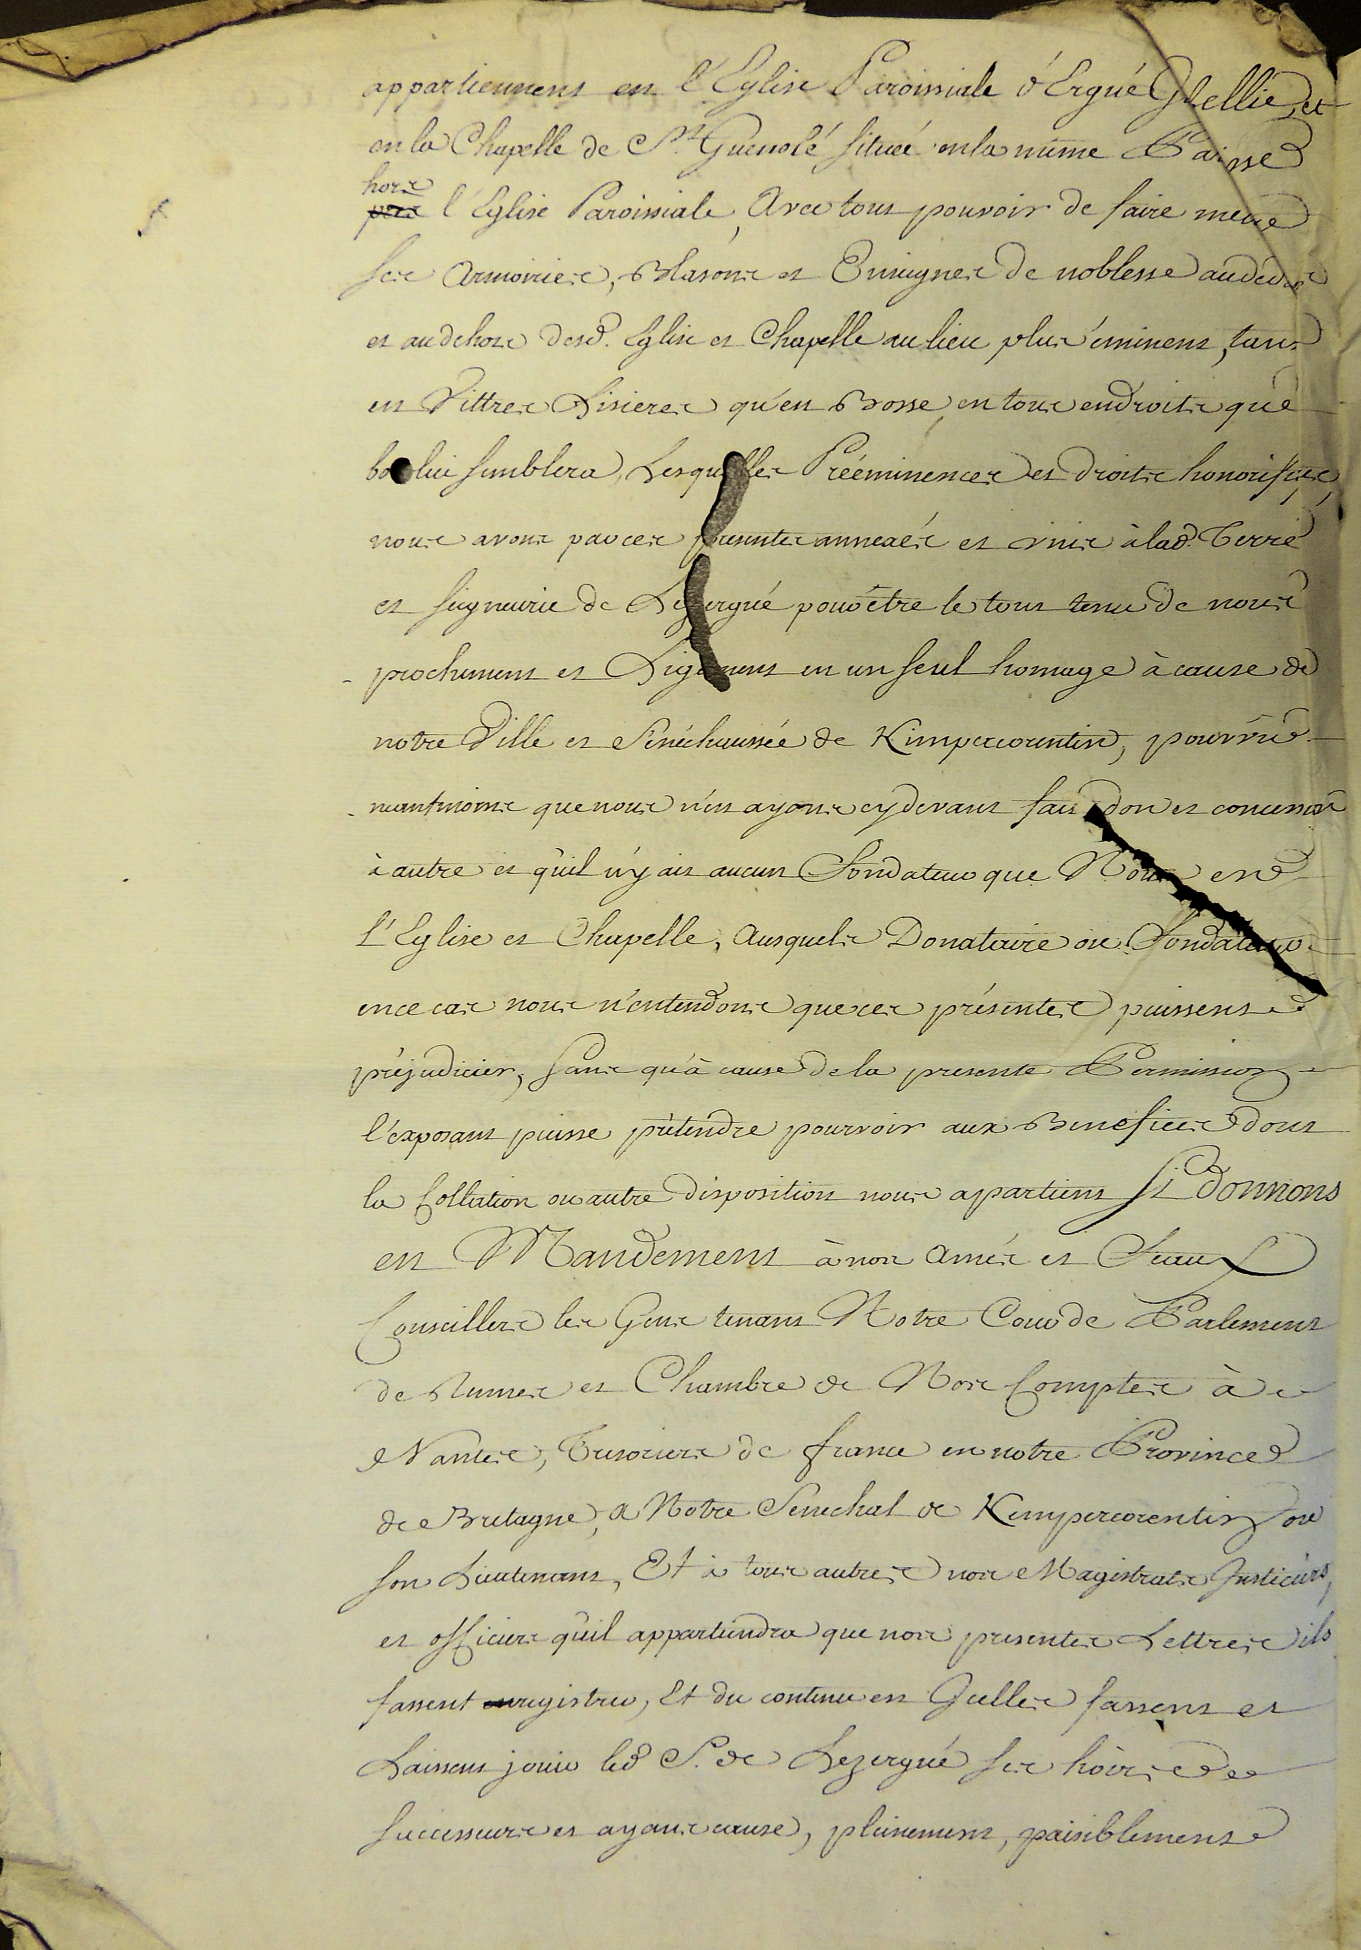 appartiennent en l'Eglise Paroissiale d'Ergué Gbellic, et
en la Chapelle de St. Guenolé située en la même Paroisse
hors
l'Eglise Paroissiale, Avec tout pouvoir de faire mettre
ses Armoiries, Blasons et Enseignes de noblesse audedans
et audehors desd. Eglise et Chapelle au lieu plus éminent, tant
en Vittres Lisieres qu'en Bosse, en tous endroits que
bon lui semblera, Lesquelles Prééminences et droits honorifiques,
nous avons par ces presentes annexées et unis à lad. Terre
et seigneurie de Lezergué pour être le tout tenu de nous
prochement et Ligement en un seul homage à cause de
notre Ville et Sénéchaussée de Kimpercorentin, pourvue
neantmoins que nous n'en ayons cydevant fait don et concession
à autre et qu'il n'y ait aucun Fondateur que Nous en
l'Eglise et Chapelle, Ausquels Donataire ou Fondateur
en ce cas nous n'entendons que ces présentes puissent
préjudicier, sans qu'à cause de la presente Permission
l'exposant puisse prétendre pourvoir aux Benefices dont
la Collation ou autre disposition nous apartient Si Donnons
en Mandement à nos Amés et Feaux
Conseillers les Gens tenant Notre Cour de Parlement
de Rennes et Chambre de Nos Comptes à
Nantes, Tresoriers de france en notre Province
de Bretagne, A Notre Senechal de Kempercorentin ou
son Lieutenant, Et à tous autres nos Magistrats Justiciers,
et officiers qu'il appartiendra que nos presentes Lettres ils
fassent enregistrer, Et du contenu en Jcelles fassent et
Laissent jouir led S. de Lezergué ses hoirs
successeurs et ayant cause, pleinement, paisiblement